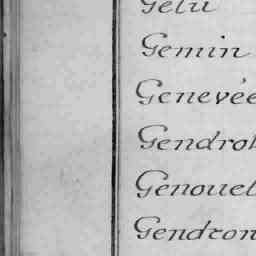 Gelu
Gemin
Genevée
Gendrot
Genouel
Gendron